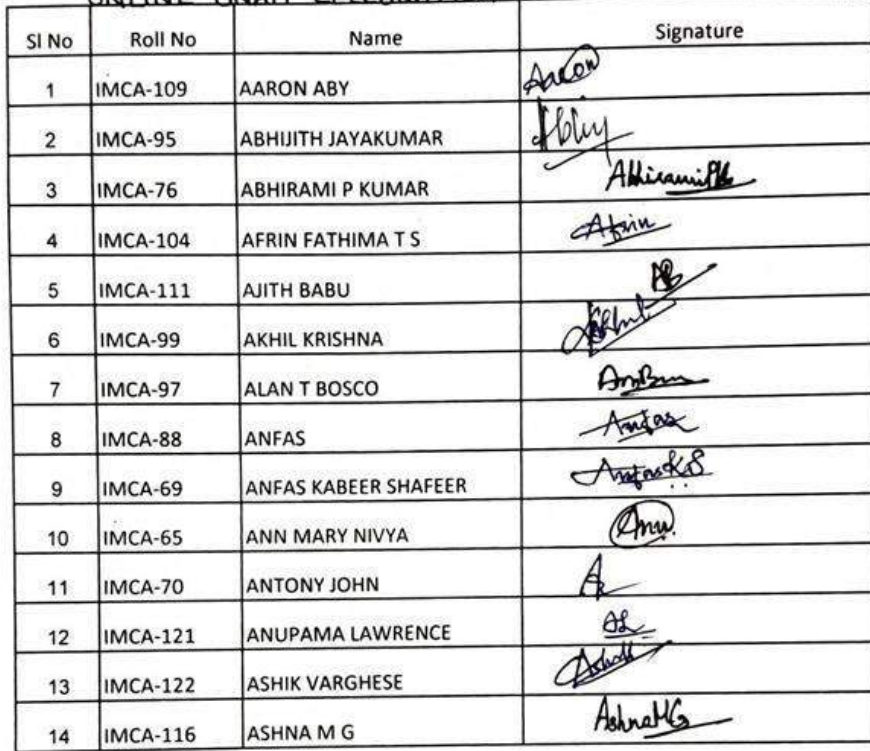 Sl No Roll No Name Signature
1 IMCA-109 AARON ABY Aaron
2 IMCA-95 ABHIJITH JAYAKUMAR
3 IMCA-76 ABHIRAMI P KUMAR AbhiramiPK
4 IMCA-104 AFRIN FATHIMA T S Afrin
5 IMCA-111 AJITH BABU
6 IMCA-99 AKHIL KRISHNA
7 IMCA-97 ALAN T BOSCO
8 IMCA-88 ANFAS Anfas
9 IMCA-69 ANFAS KABEER SHAFEER AnfasK.S
10 IMCA-65 ANN MARY NIVYA
11 IMCA-70 ANTONY JOHN
12 IMCA-121 ANUPAMA LAWRENCE AL
13 IMCA-122 ASHIK VARGHESE
14 IMCA-116 ASHNA M G AshnaMG